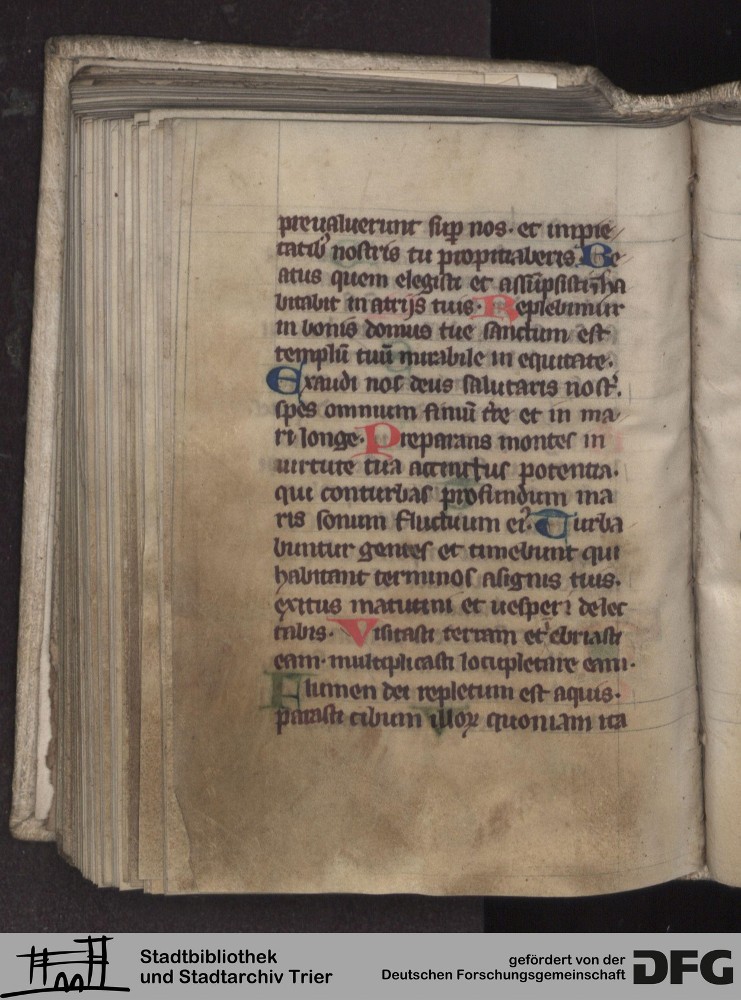 preualuerunt sup̱ nos· et impie
tatib᷒ nostris tu propitiaberis. Be
atus quem elegisti et assūpsisti ⁊ ha
bitabit in atrijs tuis· Replebimur
in bonis domus tue sanctum est
templū tuū mirabile in equitate·
Exaudi nos deus salutaris nost᷒.
spes omnium finiū tr̄e et in ma
ri longe· Preparans montes in
uirtute tua accinctus potentia·
qui conturbas profundum ma
ris sonum fluctuum ei᷒· Turba
buntur gentes et timebunt qui
habitant terminos asignis tuis·
exitus matutini et uespeꝛi delec
tabis· Visitasti terram et ebriasti
eam· multiplicasti locupletare eam·
Flumen dei repletum est aquis·
parasti cibum illoꝝ quoniam ita
Stadtbibliothek
und Stadtarchiv Trier
gefördert von der
Deutschen Forschungsgemeinschaft
DFG